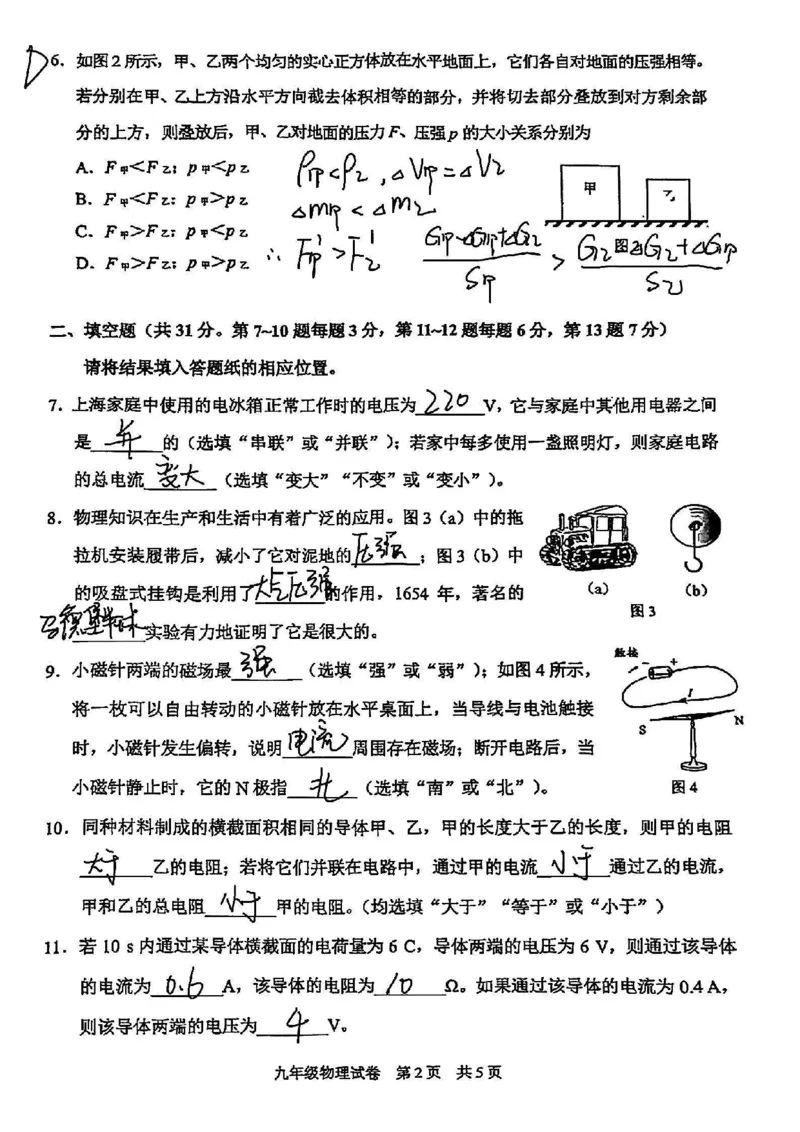 D 6. 如图2所示，甲、乙两个均匀的实心正方体放在水平地面上，它们各自对地面的压强相等。
若分别在甲、乙上方沿水平方向截去体积相等的部分，并将切去部分叠放到对方剩余部
分的上方，则叠放后，甲、乙对地面的压力F、压强p的大小关系分别为
A. F甲<F乙；p甲<p乙
B. F甲<F乙；p甲>p乙
C. F甲>F乙；p甲<p乙
D. F甲>F乙；p甲>p乙
ρ甲<ρ乙，△V甲=△V乙
△m甲<△m乙
∴ F甲'>F乙'
G甲-△G甲+△G乙 / S甲 > G乙-△G乙+△G甲 / S乙
甲 乙
图2
二、填空题（共31分。第7~10题每题3分，第11~12题每题6分，第13题7分）
请将结果填入答题纸的相应位置。
7. 上海家庭中使用的电冰箱正常工作时的电压为 220 V，它与家庭中其他用电器之间
是 并 的（选填“串联”或“并联”）；若家中每多使用一盏照明灯，则家庭电路
的总电流 变大 （选填“变大”“不变”或“变小”）。
8. 物理知识在生产和生活中有着广泛的应用。图3（a）中的拖
拉机安装履带后，减小了它对泥地的 压强 ；图3（b）中
的吸盘式挂钩是利用了 大气压强 的作用，1654 年，著名的
马德堡半球 实验有力地证明了它是很大的。
(a) (b)
图3
9. 小磁针两端的磁场最 强 （选填“强”或“弱”）；如图4所示，
将一枚可以自由转动的小磁针放在水平桌面上，当导线与电池触接
时，小磁针发生偏转，说明 电流 周围存在磁场；断开电路后，当
小磁针静止时，它的N极指 北 （选填“南”或“北”）。
触接
- +
I
S N
图4
10. 同种材料制成的横截面积相同的导体甲、乙，甲的长度大于乙的长度，则甲的电阻
大于 乙的电阻；若将它们并联在电路中，通过甲的电流 小于 通过乙的电流，
甲和乙的总电阻 小于 甲的电阻。（均选填“大于”“等于”或“小于”）
11. 若 10 s 内通过某导体横截面的电荷量为 6 C，导体两端的电压为 6 V，则通过该导体
的电流为 0.6 A，该导体的电阻为 10 Ω。如果通过该导体的电流为 0.4 A，
则该导体两端的电压为 4 V。
九年级物理试卷 第2页 共5页